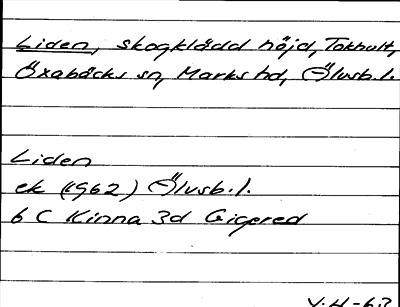 Liden, skogklädd höjd, Tokhult,
Öxabäcks sn, Marks hd, Älvsb.l.
Liden
ek (1962) Älvsb.l.
6 C Kinna 3d Gigered
V.H-63